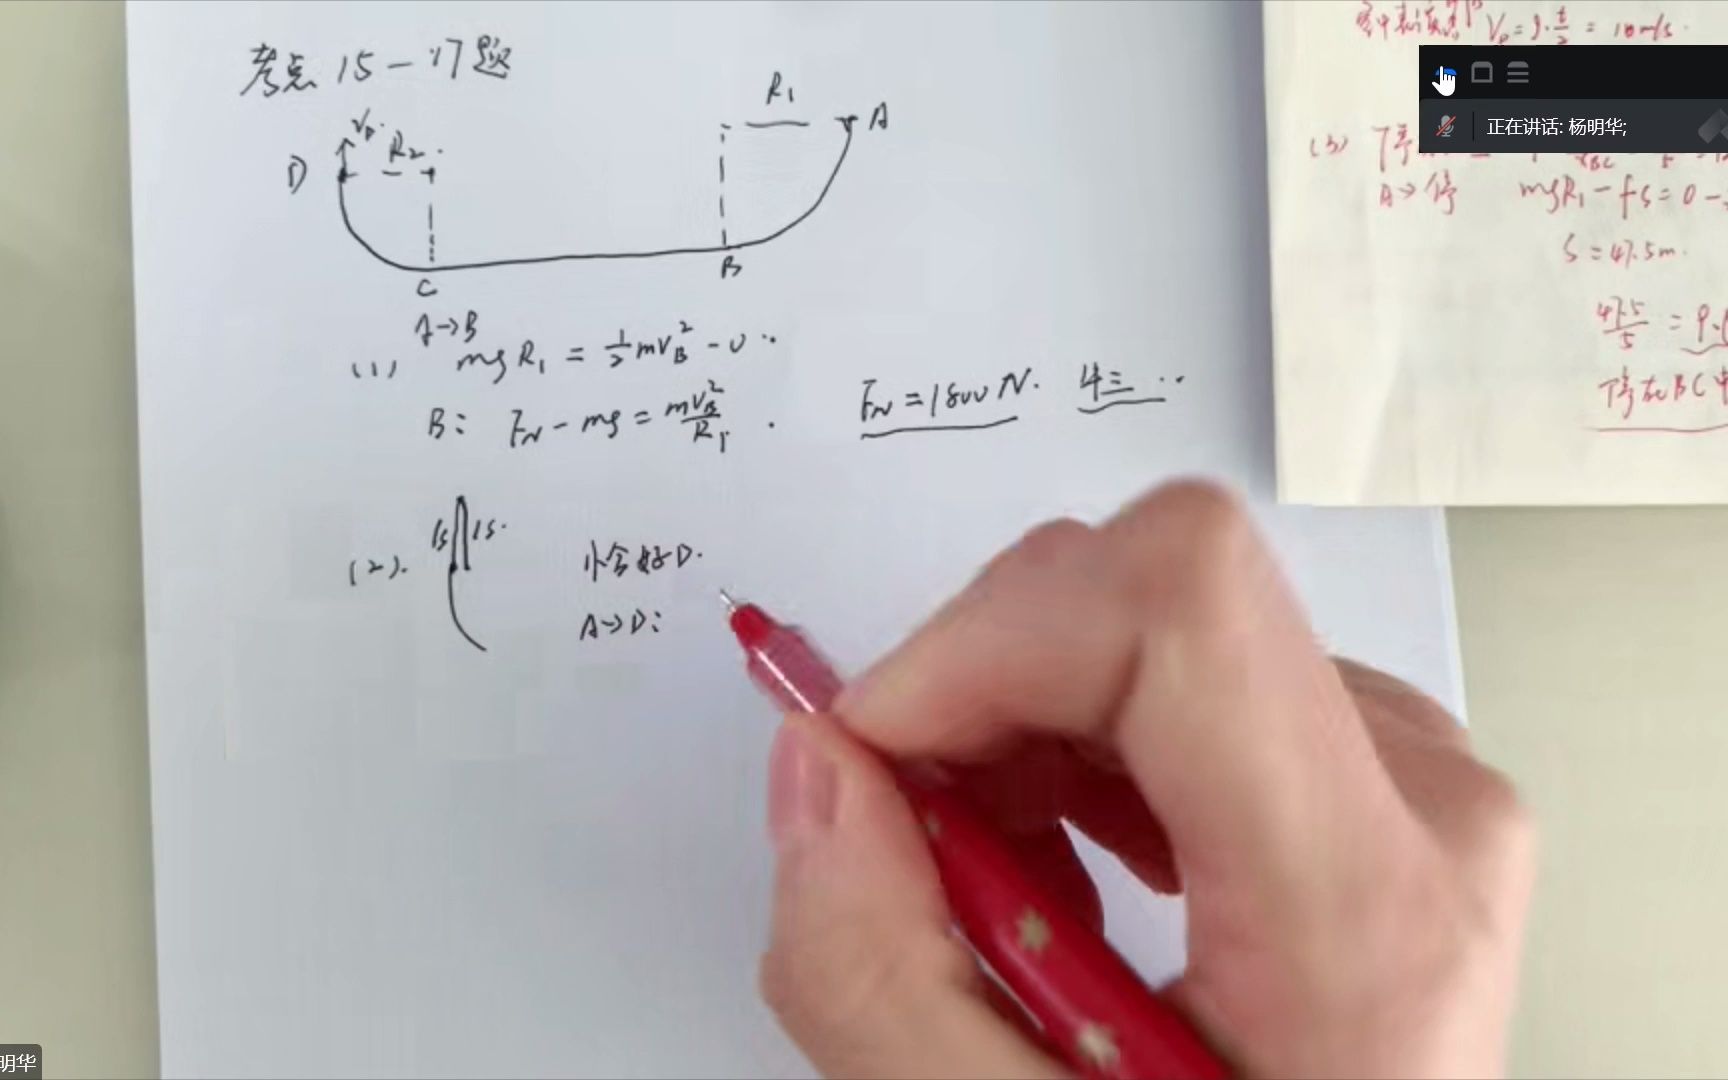 考点 15-17题
R₁
A
V_D
R₂
D
C
B
A→B
(1) mgR₁ = ½mV_B² - 0
B: F_N - mg = mV_B²/R₁
F_N = 1800 N. 牛三
(2). 1s 1s.
恰好D.
A→D:
V_D = g·t/2 = 10m/s.
(3)
A→停 mgR₁ - fs = 0 -
S = 47.5m.
47.5/5 = 9.
停在BC中
正在讲话: 杨明华;
明华